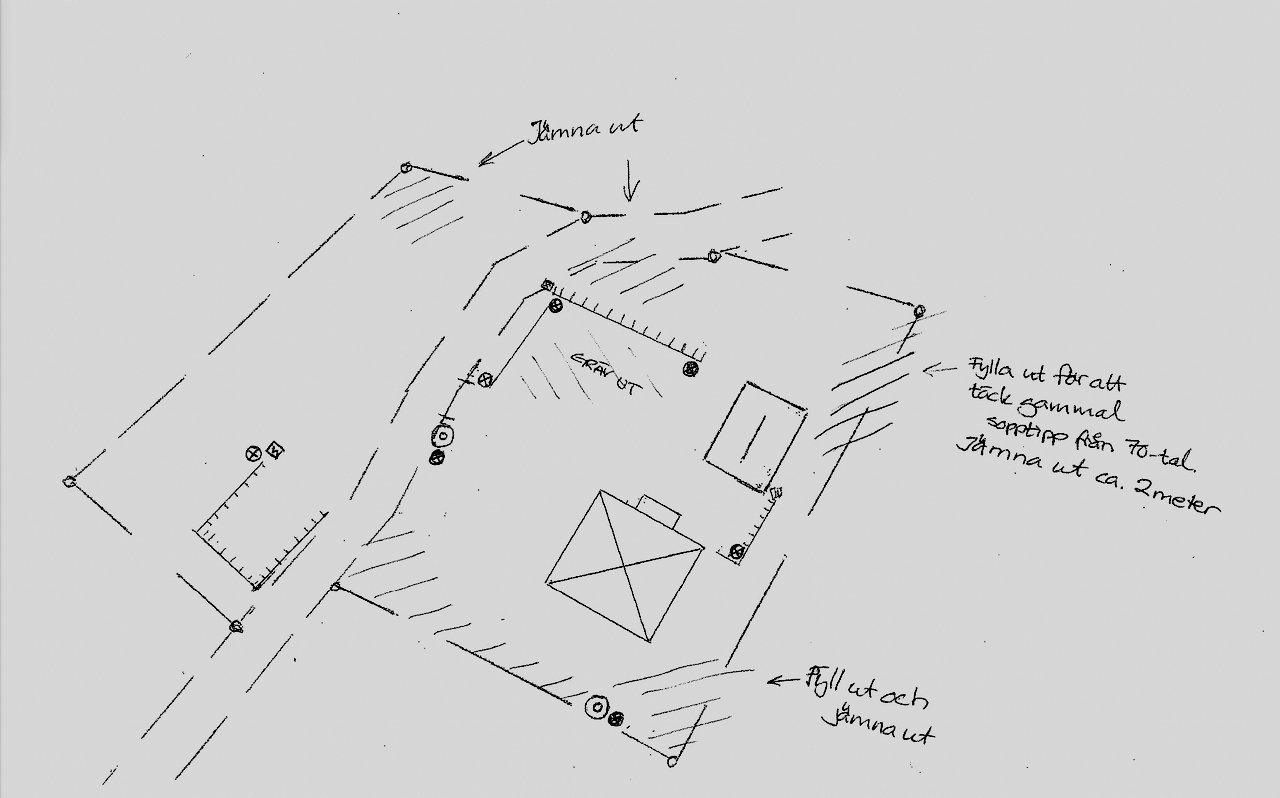 Jämna ut
GRÄV UT
Fylla ut för att
täck gammal
sopptipp från 70-tal.
Jämna ut ca. 2 meter
Fyll ut och
jämna ut